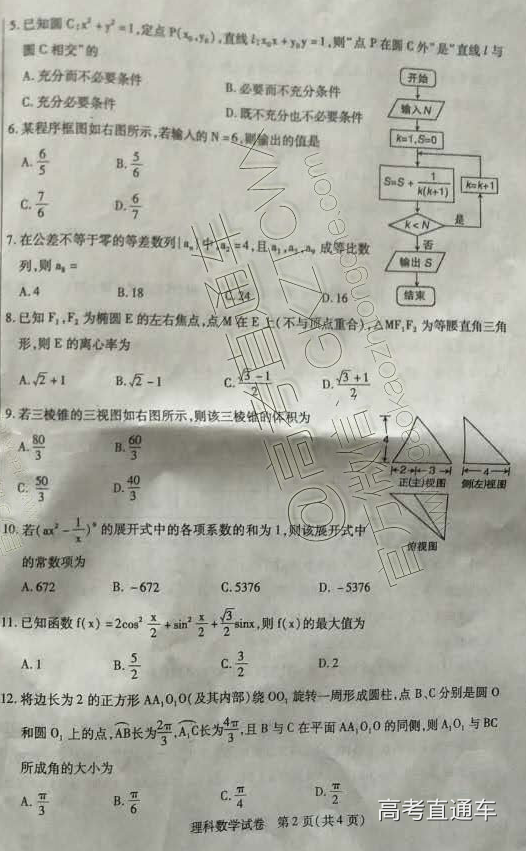 5.已知圆C:x²+y²=1,定点P(x₀,y₀),直线l:x₀x+y₀y=1,则“点P在圆C外”是“直线l与
圆C相交”的
A.充分而不必要条件
B.必要而不充分条件
C.充分必要条件
D.既不充分也不必要条件
6.某程序框图如右图所示,若输入的N=6,则输出的值是
A. 6/5
B. 5/6
C. 7/6
D. 6/7
开始
输入N
k=1,S=0
S=S+ 1/k(k+1)
k=k+1
k<N
是
否
输出S
结束
7.在公差不等于零的等差数列{aₙ}中,a₂=4,且a₁,a₃,a₉成等比数
列,则a₈=
A.4
B.18
C.24
D.16
8.已知F₁,F₂为椭圆E的左右焦点,点M在E上(不与顶点重合),△MF₁F₂为等腰直角三角
形,则E的离心率为
A.√2+1
B.√2-1
C. (√3-1)/2
D. (√3+1)/2
9.若三棱锥的三视图如右图所示,则该三棱锥的体积为
A. 80/3
B. 60/3
C. 50/3
D. 40/3
4
2
3
正(主)视图
4
侧(左)视图
俯视图
10.若(ax²-1/x)⁹的展开式中的各项系数的和为1,则该展开式中
的常数项为
A.672
B. -672
C.5376
D. -5376
11.已知函数f(x)=2cos² x/2+sin² x/2+√3/2 sinx,则f(x)的最大值为
A.1
B. 5/2
C. 3/2
D.2
12.将边长为2的正方形AA₁O₁O(及其内部)绕OO₁旋转一周形成圆柱,点B、C分别是圆O
和圆O₁上的点,AB长为2π/3,A₁C长为4π/3,且B与C在平面AA₁O₁O的同侧,则A₁O₁与BC
所成角的大小为
A. π/3
B. π/6
C. π/4
D. π/2
理科数学试卷 第2页(共4页)
高考直通车
@高考直通车GKZTCWX